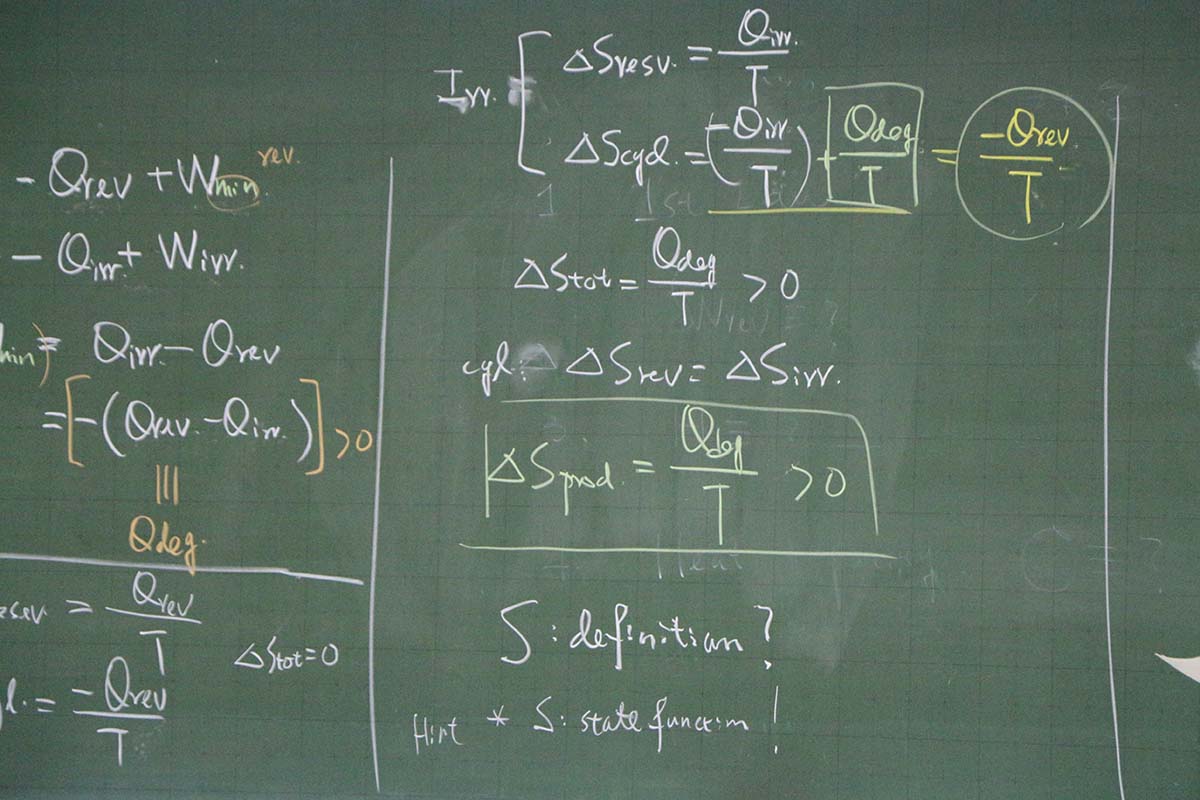 - Qrev + Wmin rev.
- Qirr. + Wirr.
min) = Qirr. - Qrev
= [-(Qrev. - Qirr.)] > 0
≡
Qdeg.
resv = Qrev / T
ΔStot = 0
yl. = -Qrev / T
Irr. = [ ΔSresv. = Qirr. / T
ΔScyl. = (-Qirr / T) + Qdeg / T = -Qrev / T
ΔStot = Qdeg / T > 0
cyl.: ΔSrev = ΔSirr.
ΔSprod. = Qdeg / T > 0
S : definition?
Hint * S : state function!